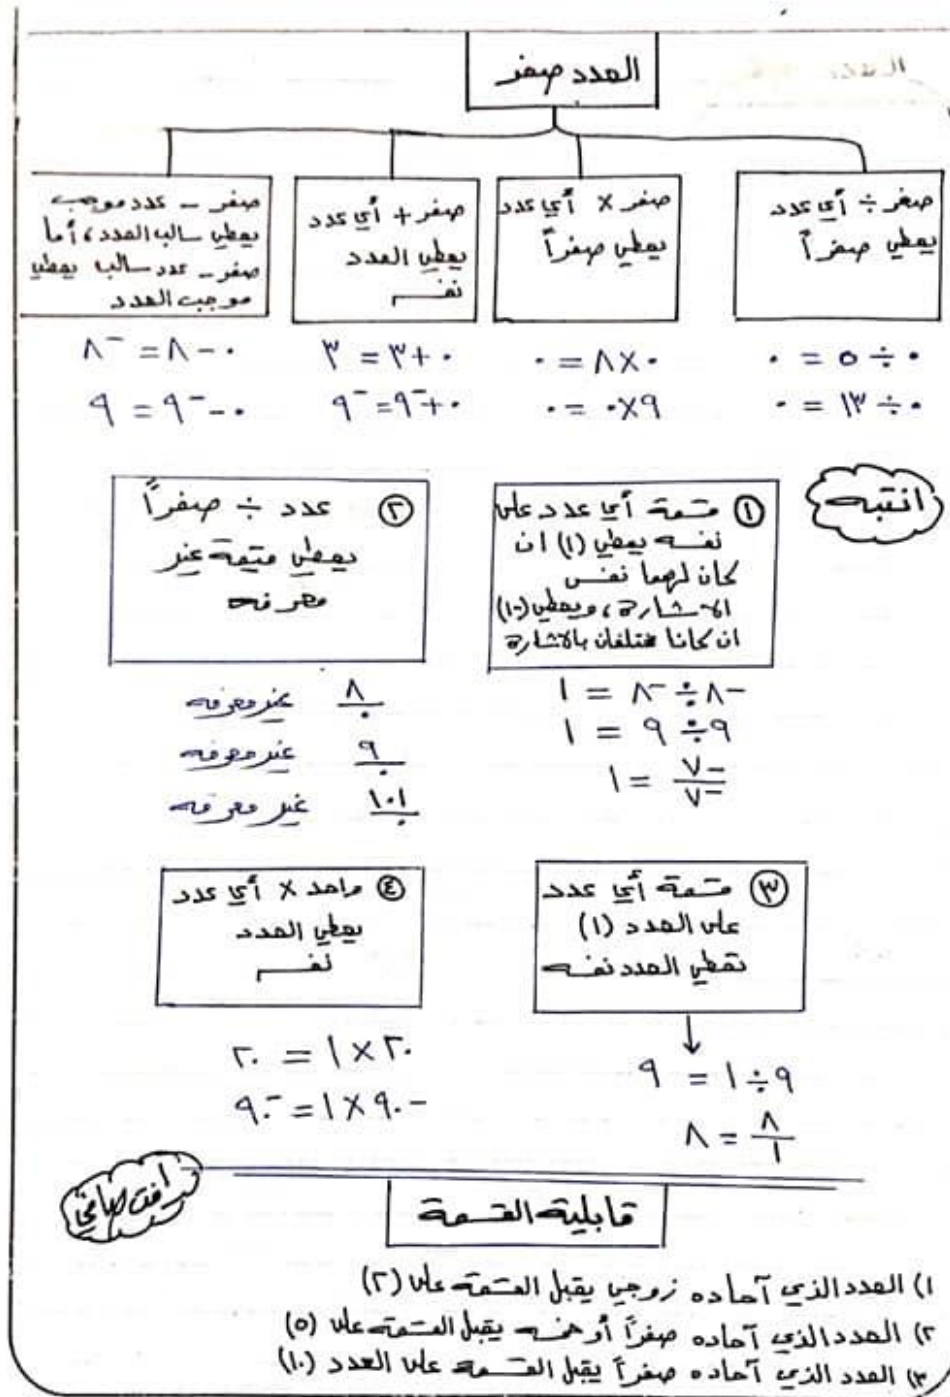 العدد صفر
صفر ÷ أي عدد
يعطي صفراً
صفر × أي عدد
يعطي صفراً
صفر + أي عدد
يعطي العدد
نفسه
صفر - عدد موجب
يعطي سالب العدد، أما
صفر - عدد سالب يعطي
موجب العدد
٠ ÷ ٥ = ٠
٠ ÷ ١٣ = ٠
٠ × ٨ = ٠
٩ × ٠ = ٠
٠ + ٣ = ٣
٠ + ⁻٩ = ⁻٩
٠ - ٨ = ⁻٨
٠ - ⁻٩ = ٩
انتبه
① قسمة أي عدد على
نفسه يعطي (١) ان
كان لهما نفس
الاشارة، ويعطي (-١)
ان كانا مختلفان بالاشارة
② عدد ÷ صفراً
يعطي قيمة غير
معرفه
-٨ ÷ -٨ = ١
٩ ÷ ٩ = ١
-٧ / -٧ = ١
٨ / ٠ غير معرفه
٩ / ٠ غير معرفه
١٠١ / ٠ غير معرفه
③ قسمة أي عدد
على العدد (١)
تعطي العدد نفسه
④ واحد × أي عدد
يعطي العدد
نفسه
٩ ÷ ١ = ٩
٨ / ١ = ٨
٢٠ × ١ = ٢٠
-٩٠ × ١ = -٩٠
قابلية القسمة
١) العدد الذي آحاده زوجي يقبل القسمة على (٢)
٢) العدد الذي آحاده صفراً أو خمسه يقبل القسمة على (٥)
٣) العدد الذي آحاده صفراً يقبل القسمة على العدد (١٠)